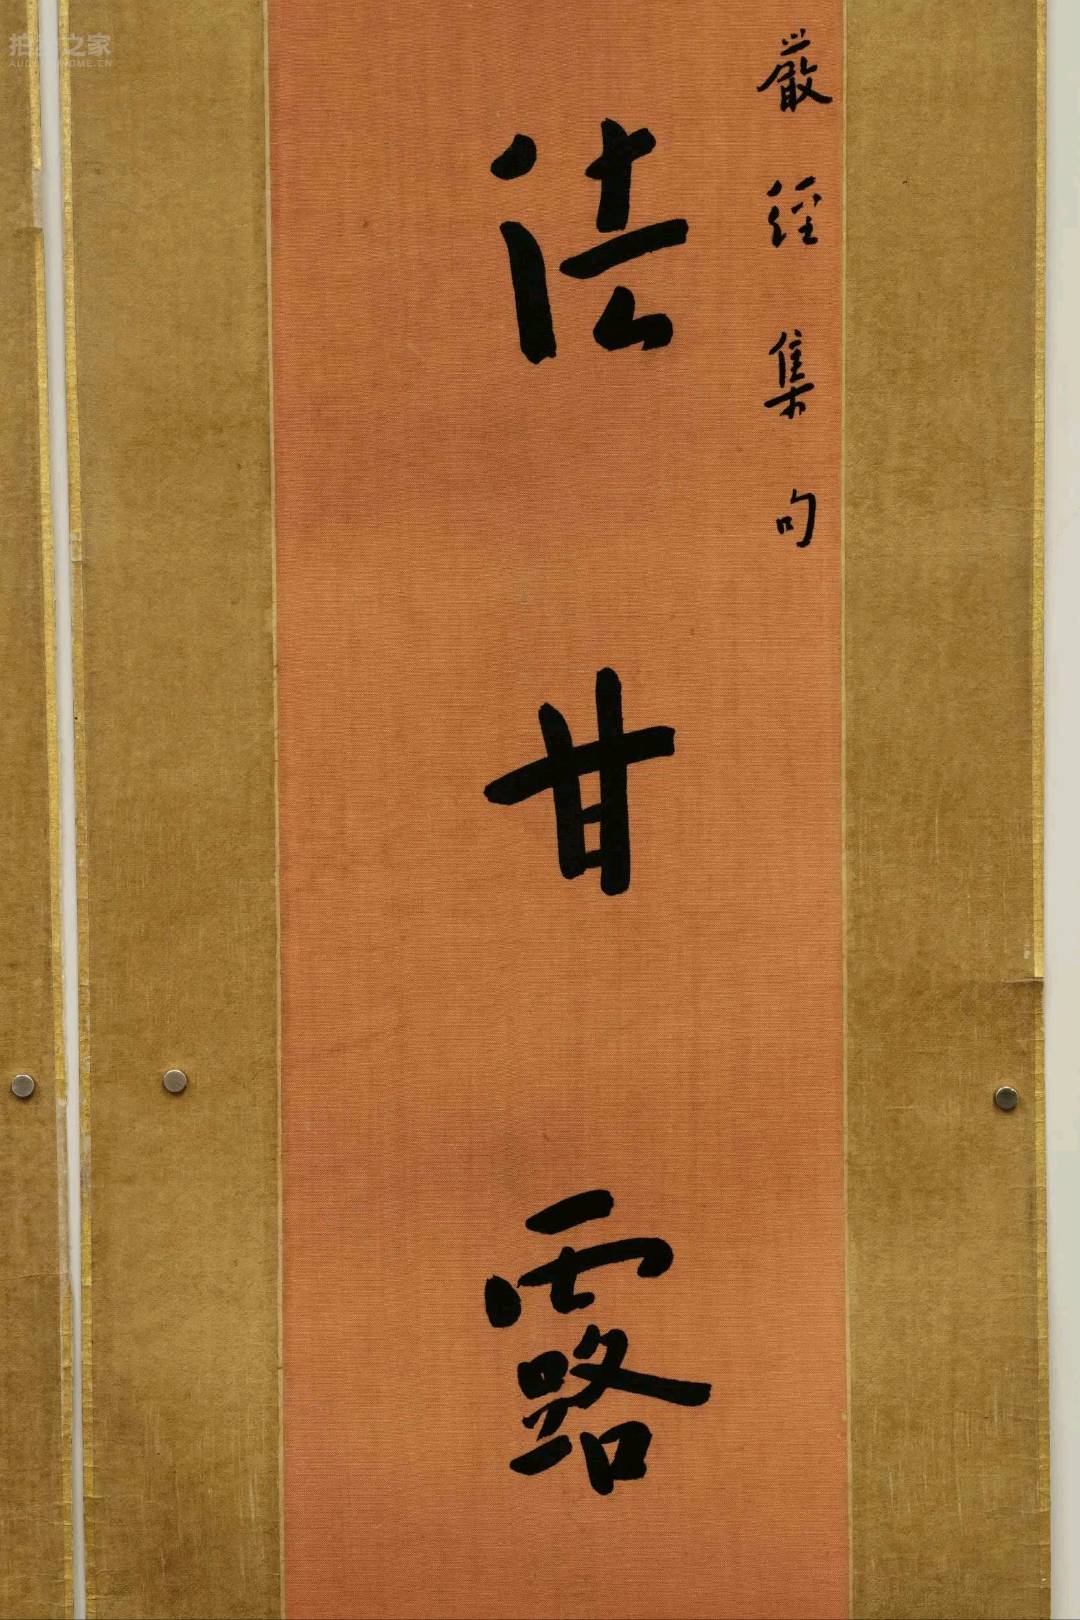 嚴經集句
法甘露
拍卖之家
AUCTIONHOME.CN